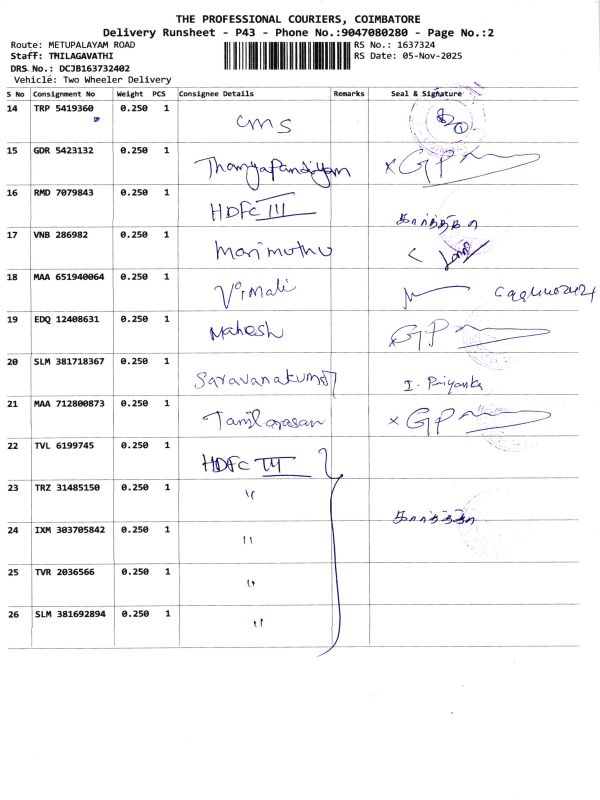 THE PROFESSIONAL COURIERS, COIMBATORE
Delivery Runsheet - P43 - Phone No.:9047080280 - Page No.:2
Route: METUPALAYAM ROAD RS No.: 1637324
Staff: THILAGAVATHI RS Date: 05-Nov-2025
DRS No.: DCJB163732402
Vehicle: Two Wheeler Delivery
S No Consignment No Weight PCS Consignee Details Remarks Seal & Signature
14 TRP 5419360 0.250 1 cms
15 GDR 5423132 0.250 1 Thangapandiyam x GP
16 RMD 7079843 0.250 1 HDFC III கார்த்திகா
17 VNB 286982 0.250 1 Marimuthu
18 MAA 651940064 0.250 1 Vimali
19 EDQ 12408631 0.250 1 Mahesh GP
20 SLM 381718367 0.250 1 Saravanakumar I. Priyanka
21 MAA 712800873 0.250 1 Tamilarasan x GP
22 TVL 6199745 0.250 1 HDFC III
23 TRZ 31485150 0.250 1 " கார்த்திகா
24 IXM 303705842 0.250 1 "
25 TVR 2036566 0.250 1 "
26 SLM 381692894 0.250 1 "